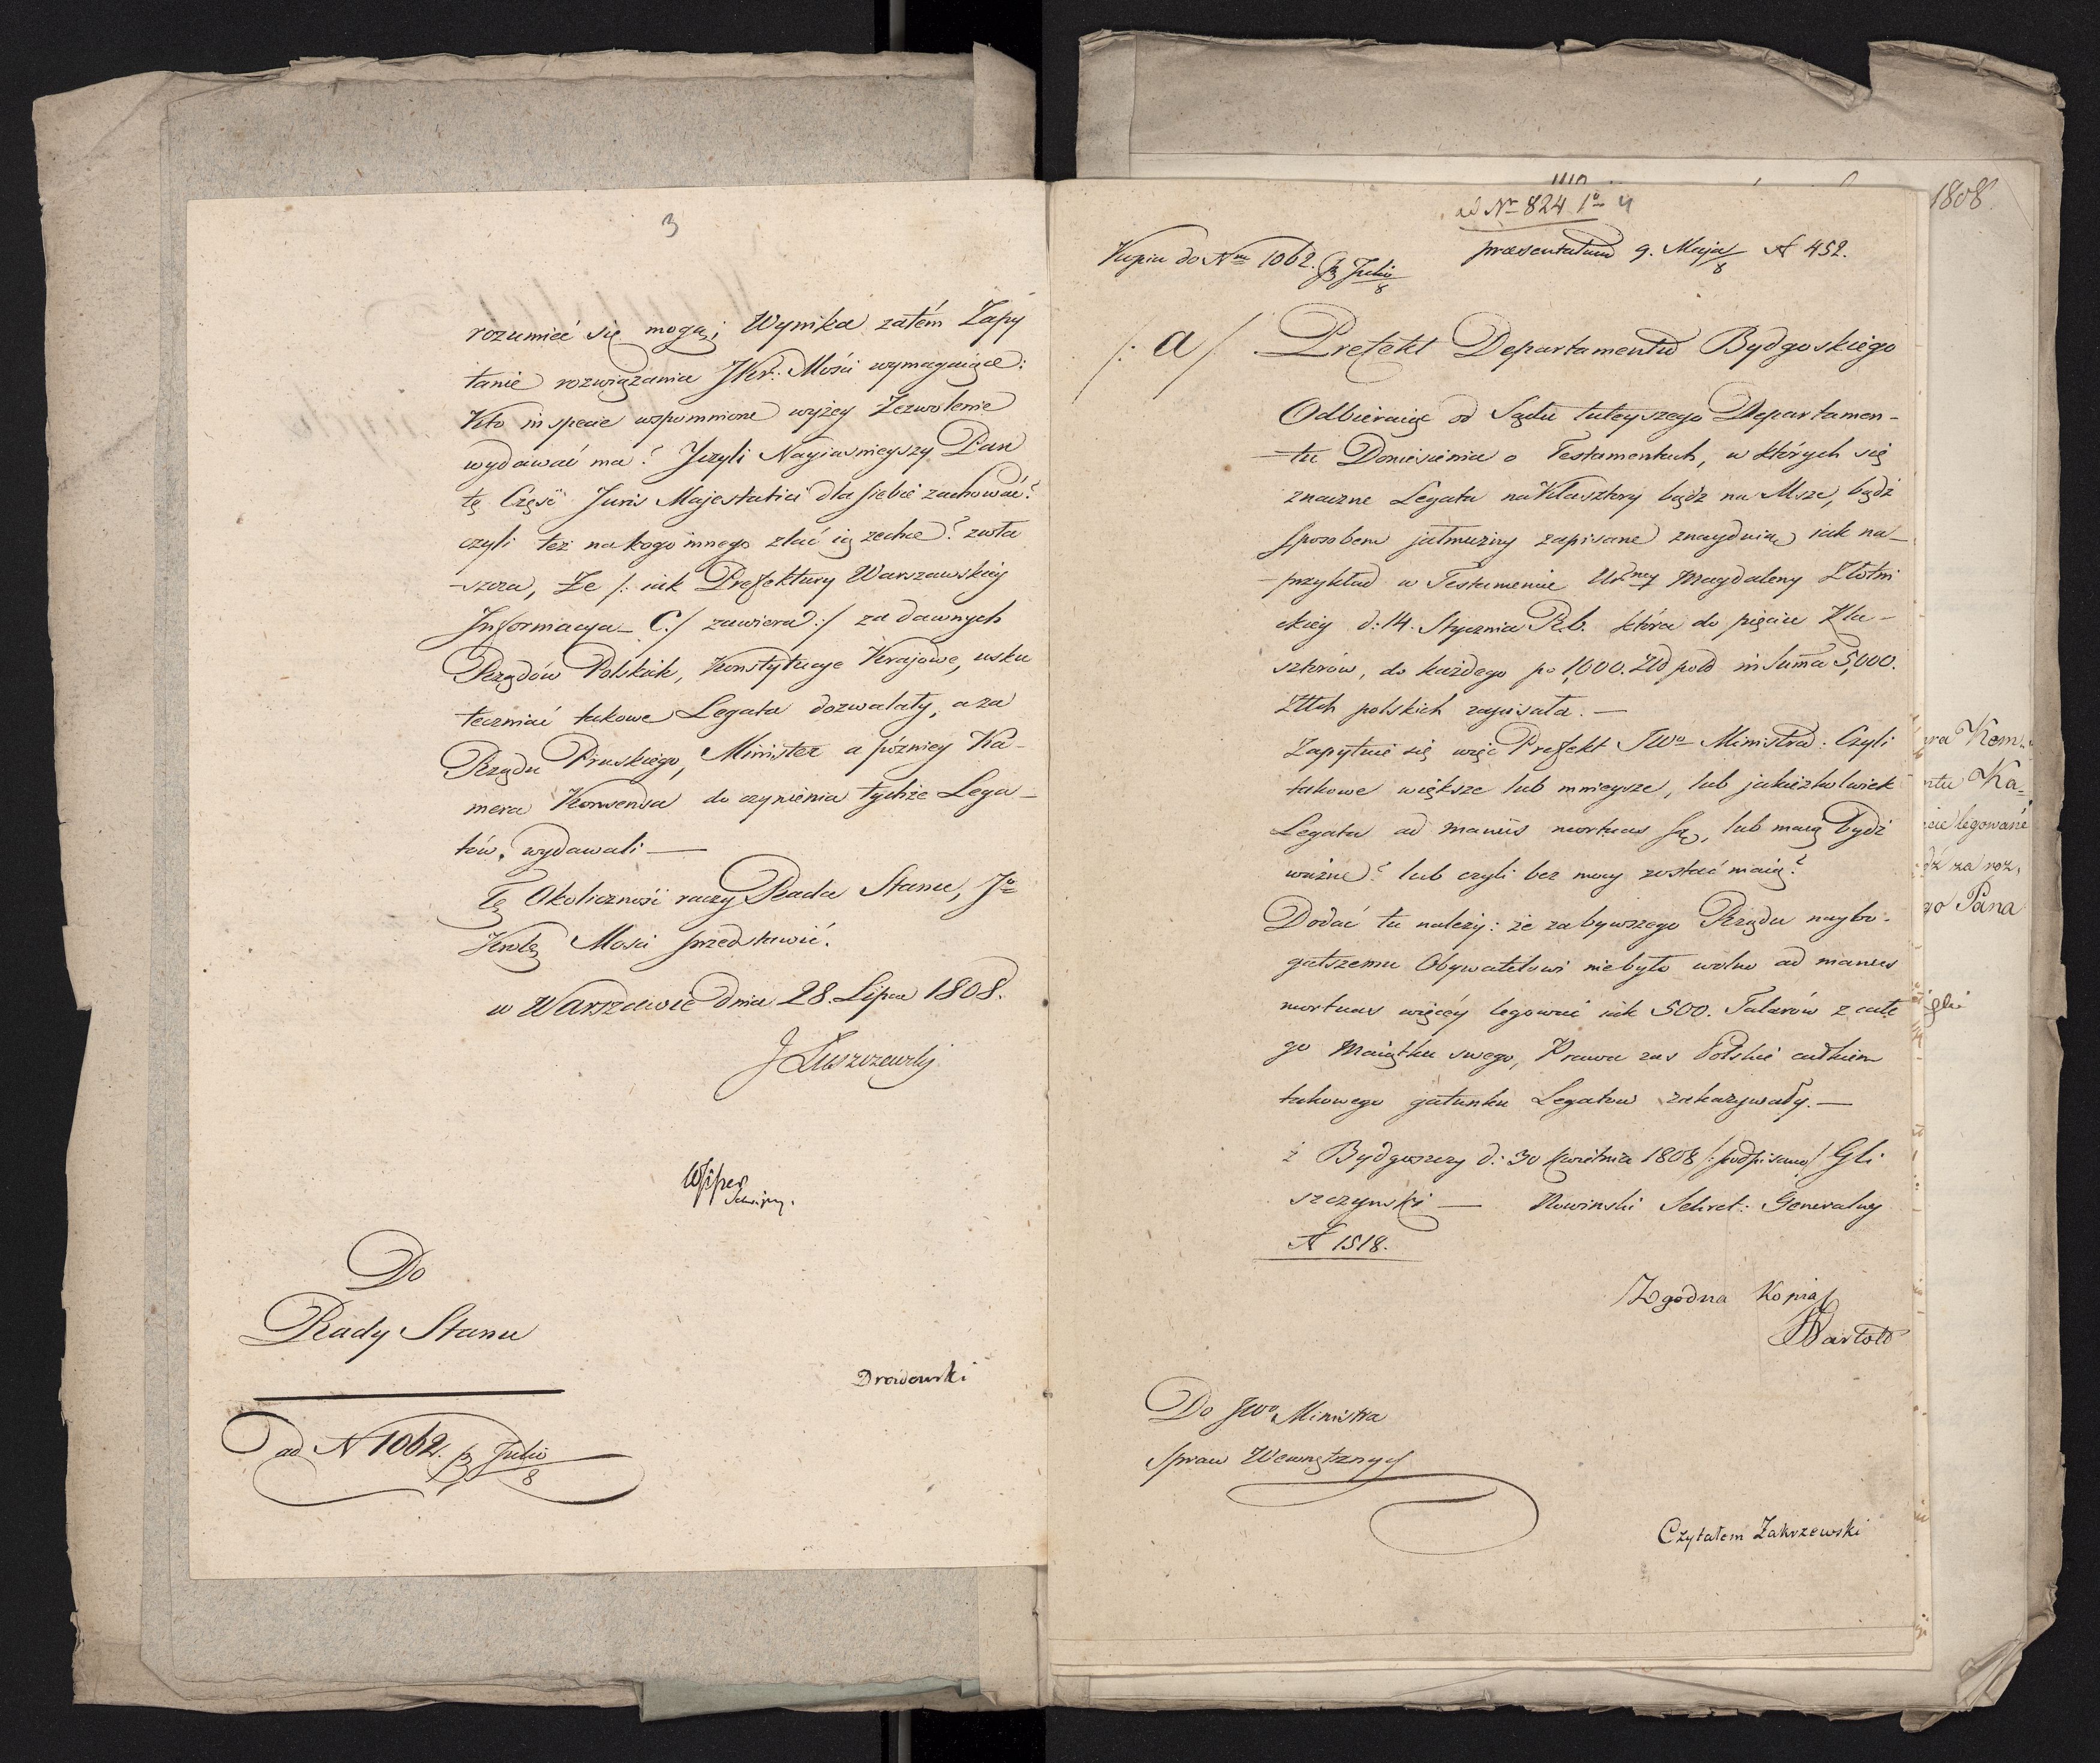 3
rozumieć się mogą; Wynika zatém Zapy
tanie rozwiązania JKr: Mości wymagaiące:
Kto in specie wspomnione wyżey Zezwolenie
wydawać ma? Jeżyli Nayiasnieyszy Pan
tę Część Juris Majestatici dla siebie zachować?
czyli też na kogo innego zlać ią zechce? zwła
-szcza, Że /: iak Prefektury Warszawskiey
Informacya C./ zawiera :/ za dawnych
Rządów Polskich, Konstytucye Krajowe, usku
teczniać takowe Legata dozwalały, a za
Rządu Pruskiego, Minister a pózniey Ka-
mera Konsensa do czynienia tychże Lega-
tów, wydawali —
Tę Okoliczność raczy Rada Stanu, Jo
Krolę Mości przedstawić.
w Warszawie dnia 28. Lipca 1808.
J Łuszczewsky
Do
Rady Stanu
Drozdowski
ad N 1062. p Julio 8
ad Nr 824 1o 4
Kopia do Nru 1062. p Julio 8
præsentatum 9. Maja 8 N 452.
/: a /
Prefekt Departamentu Bydgoskiego
Odbieraiąc od Sądu tuteyszego Departamen-
-tu Doniesienia o Testamentach, w których się
znaczne Legata na Klasztory bądz na Msze, bądź
sposobem jałmużny zapisane znayduią, iak na-
-przykład w Testamencie Urney Magdaleny Złotni
ckiey d: 14. Stycznia R.b. która do pięciu Kla-
sztorów, do każdego po 1,000. Złł pols in Suma 5,000.
Złłch polskich zapisała. —
Zapytuie się więc Prefekt JWo Ministra: Czyli
takowe większe lub mnieysze, lub jakieżkolwiek
Legata ad manus mortuas są, lub maią bydź
ważne? lub czyli bez mocy zostać maią?
Dodać tu należy: że za bywszego Rządu naybo-
gatszemu Obywatelowi niebyło wolno ad manus
mortuas więcéy legować iak 500. Talarów z całe
go Maiątku swego, Prawa zas Polskie całkiem
takowego gatunku Legatow zakazywały. —
z Bydgoszczy d: 30 Kwietnia 1808 /: podpisano/ Gli
szczynski — Nowinski Sekret: Generalny
N 1518.
Zgodna Kopia
Bartold
Do JWo Ministra
Spraw Wewnętrznych
Czytałem Zakrzewski
1808.